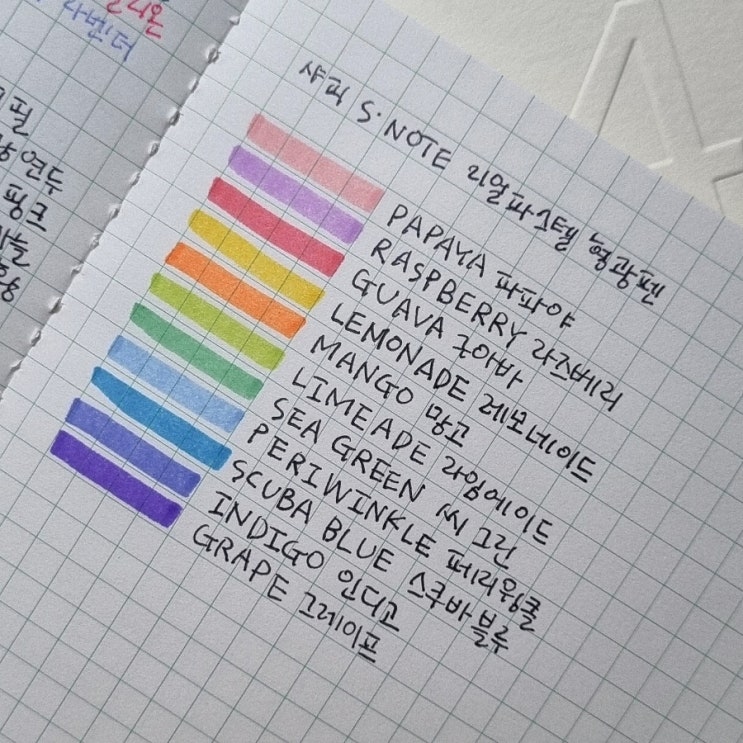 라벤더
필
연두
핑크
샤피 S·NOTE 리얼파스텔 형광펜
PAPAYA 파파야
RASPBERRY 라즈베리
GUAVA 구아바
LEMONADE 레모네이드
MANGO 망고
LIMEADE 라임에이드
SEA GREEN 씨 그린
PERIWINKLE 페리윙클
SCUBA BLUE 스쿠바 블루
INDIGO 인디고
GRAPE 그레이프